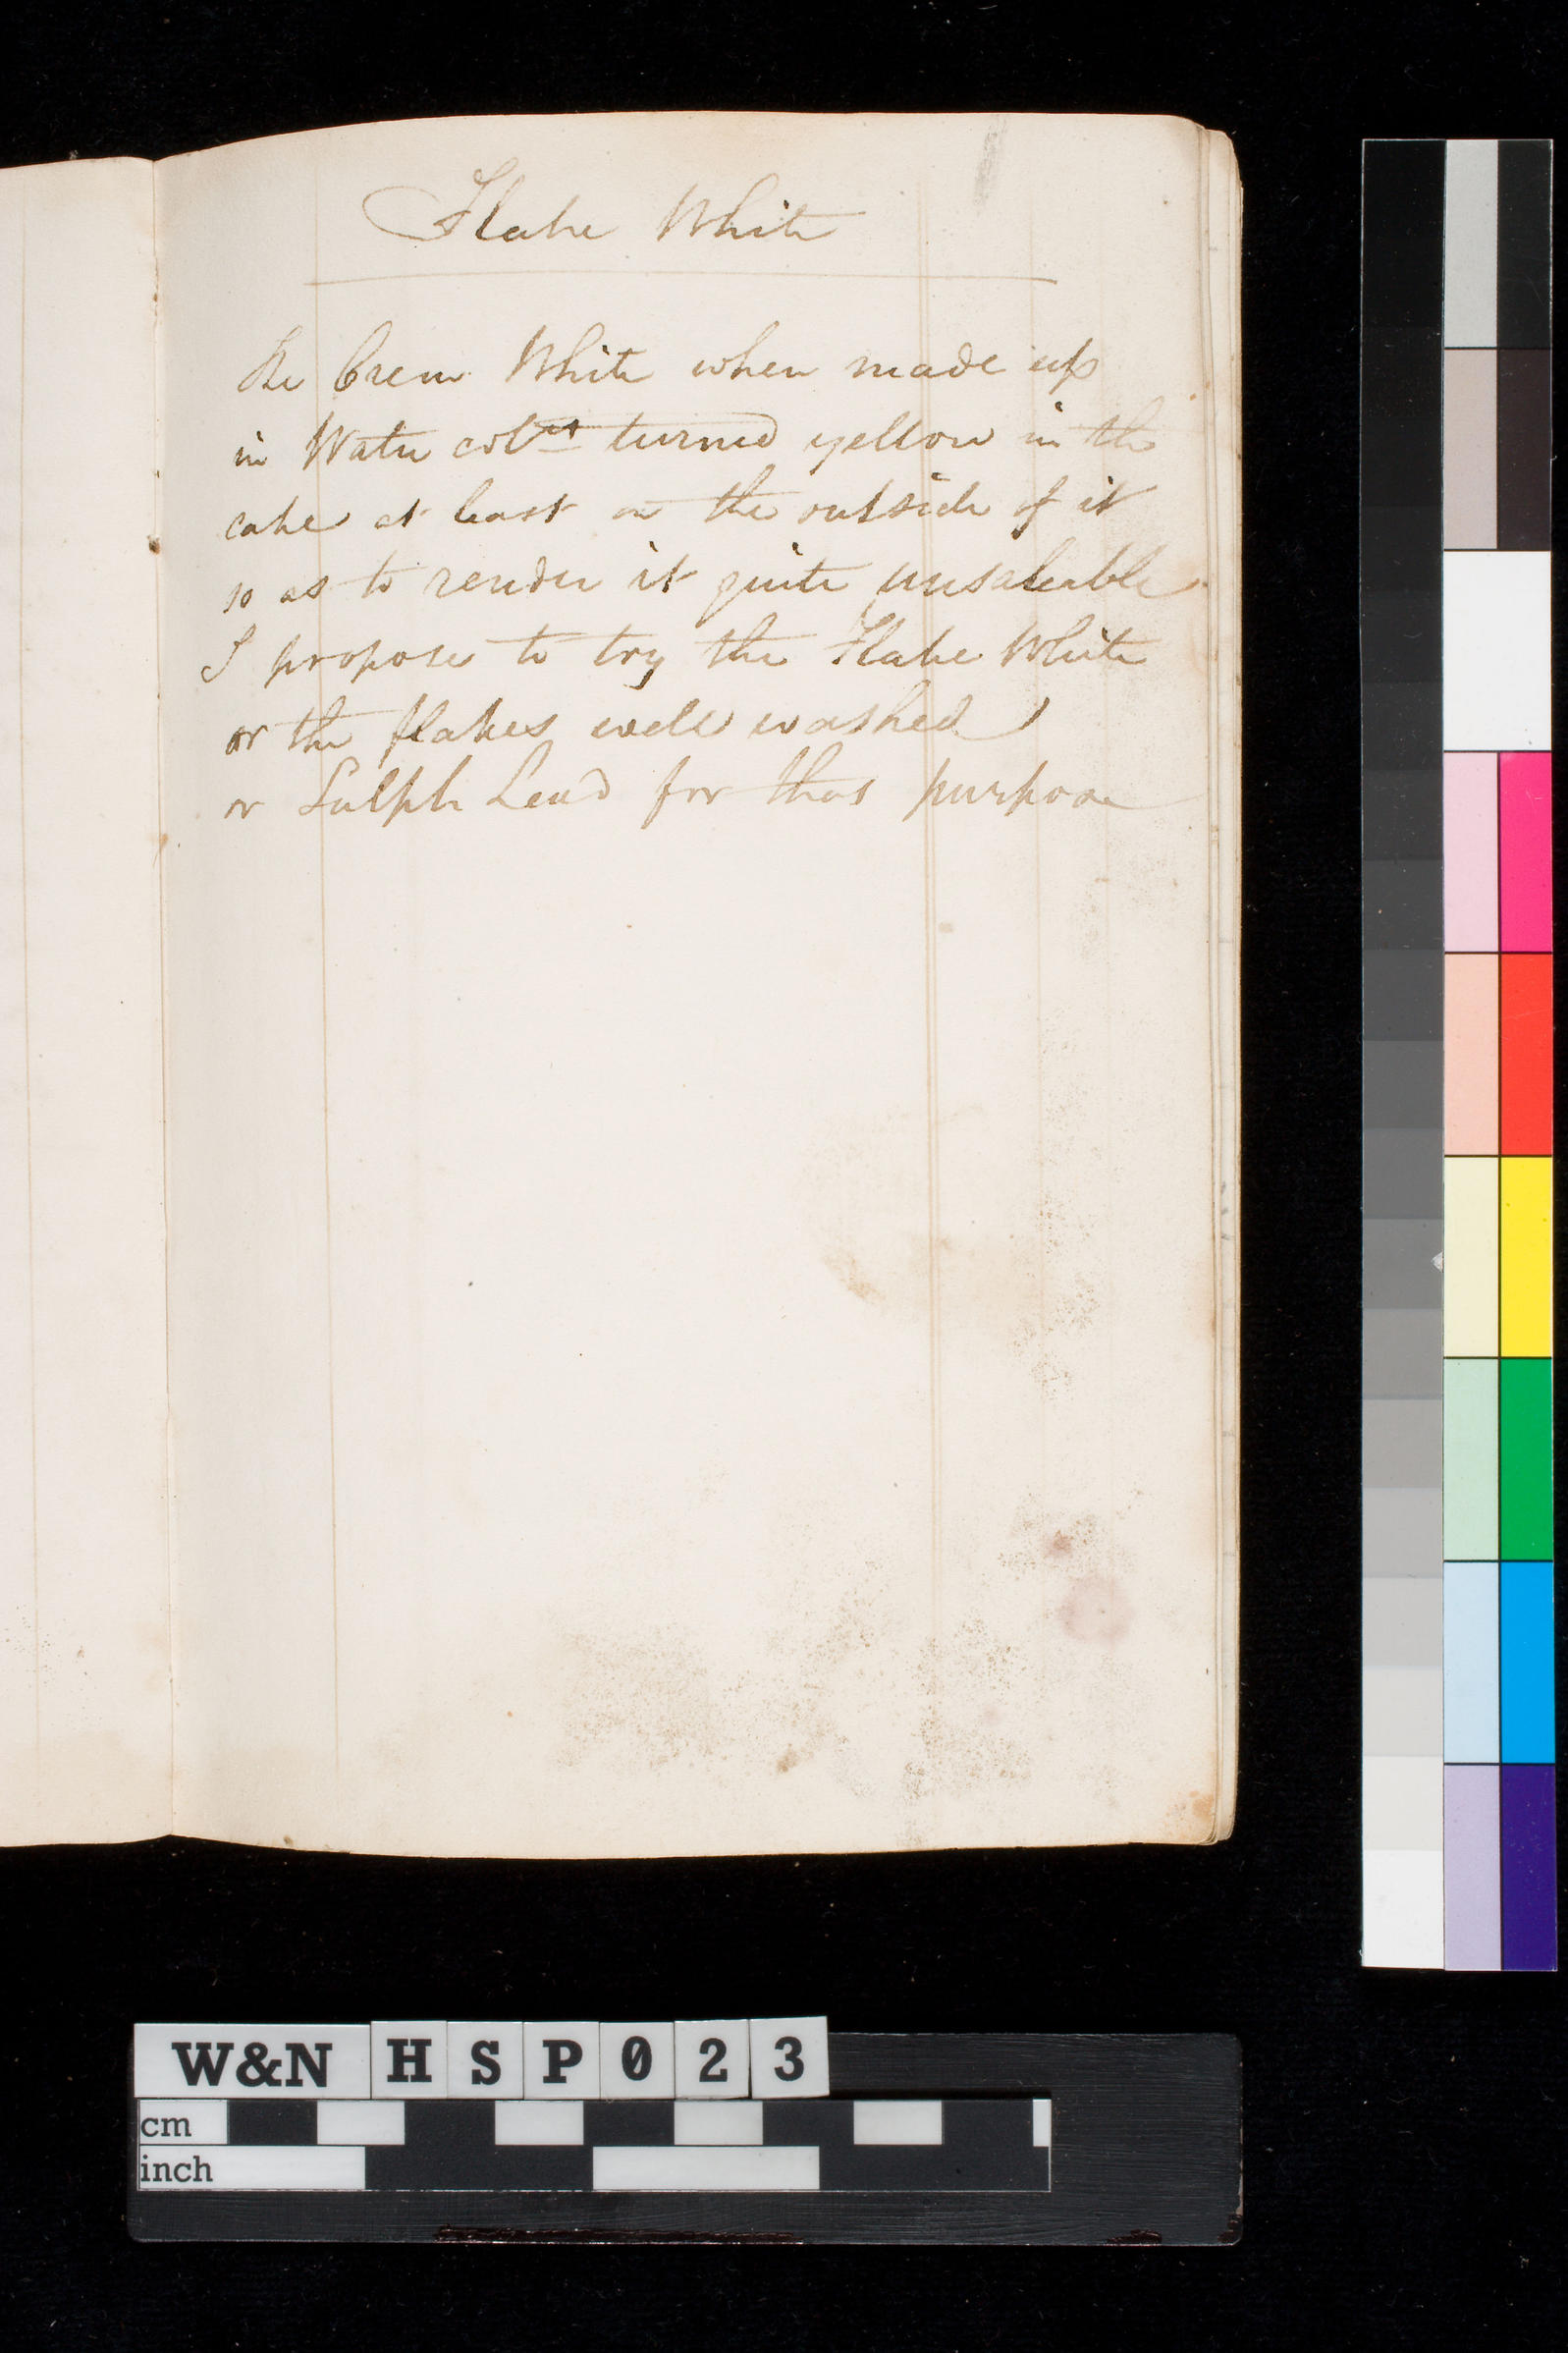 Flake White
The Crem White when made up
in Water col^rs turned yellow in the
cake at least on the outside of it
so as to render it quite unsaleable
I propose to try the Flake White
or the flakes well washed
or Sulph Lead for that purpose
W&N HSP023
cm
inch